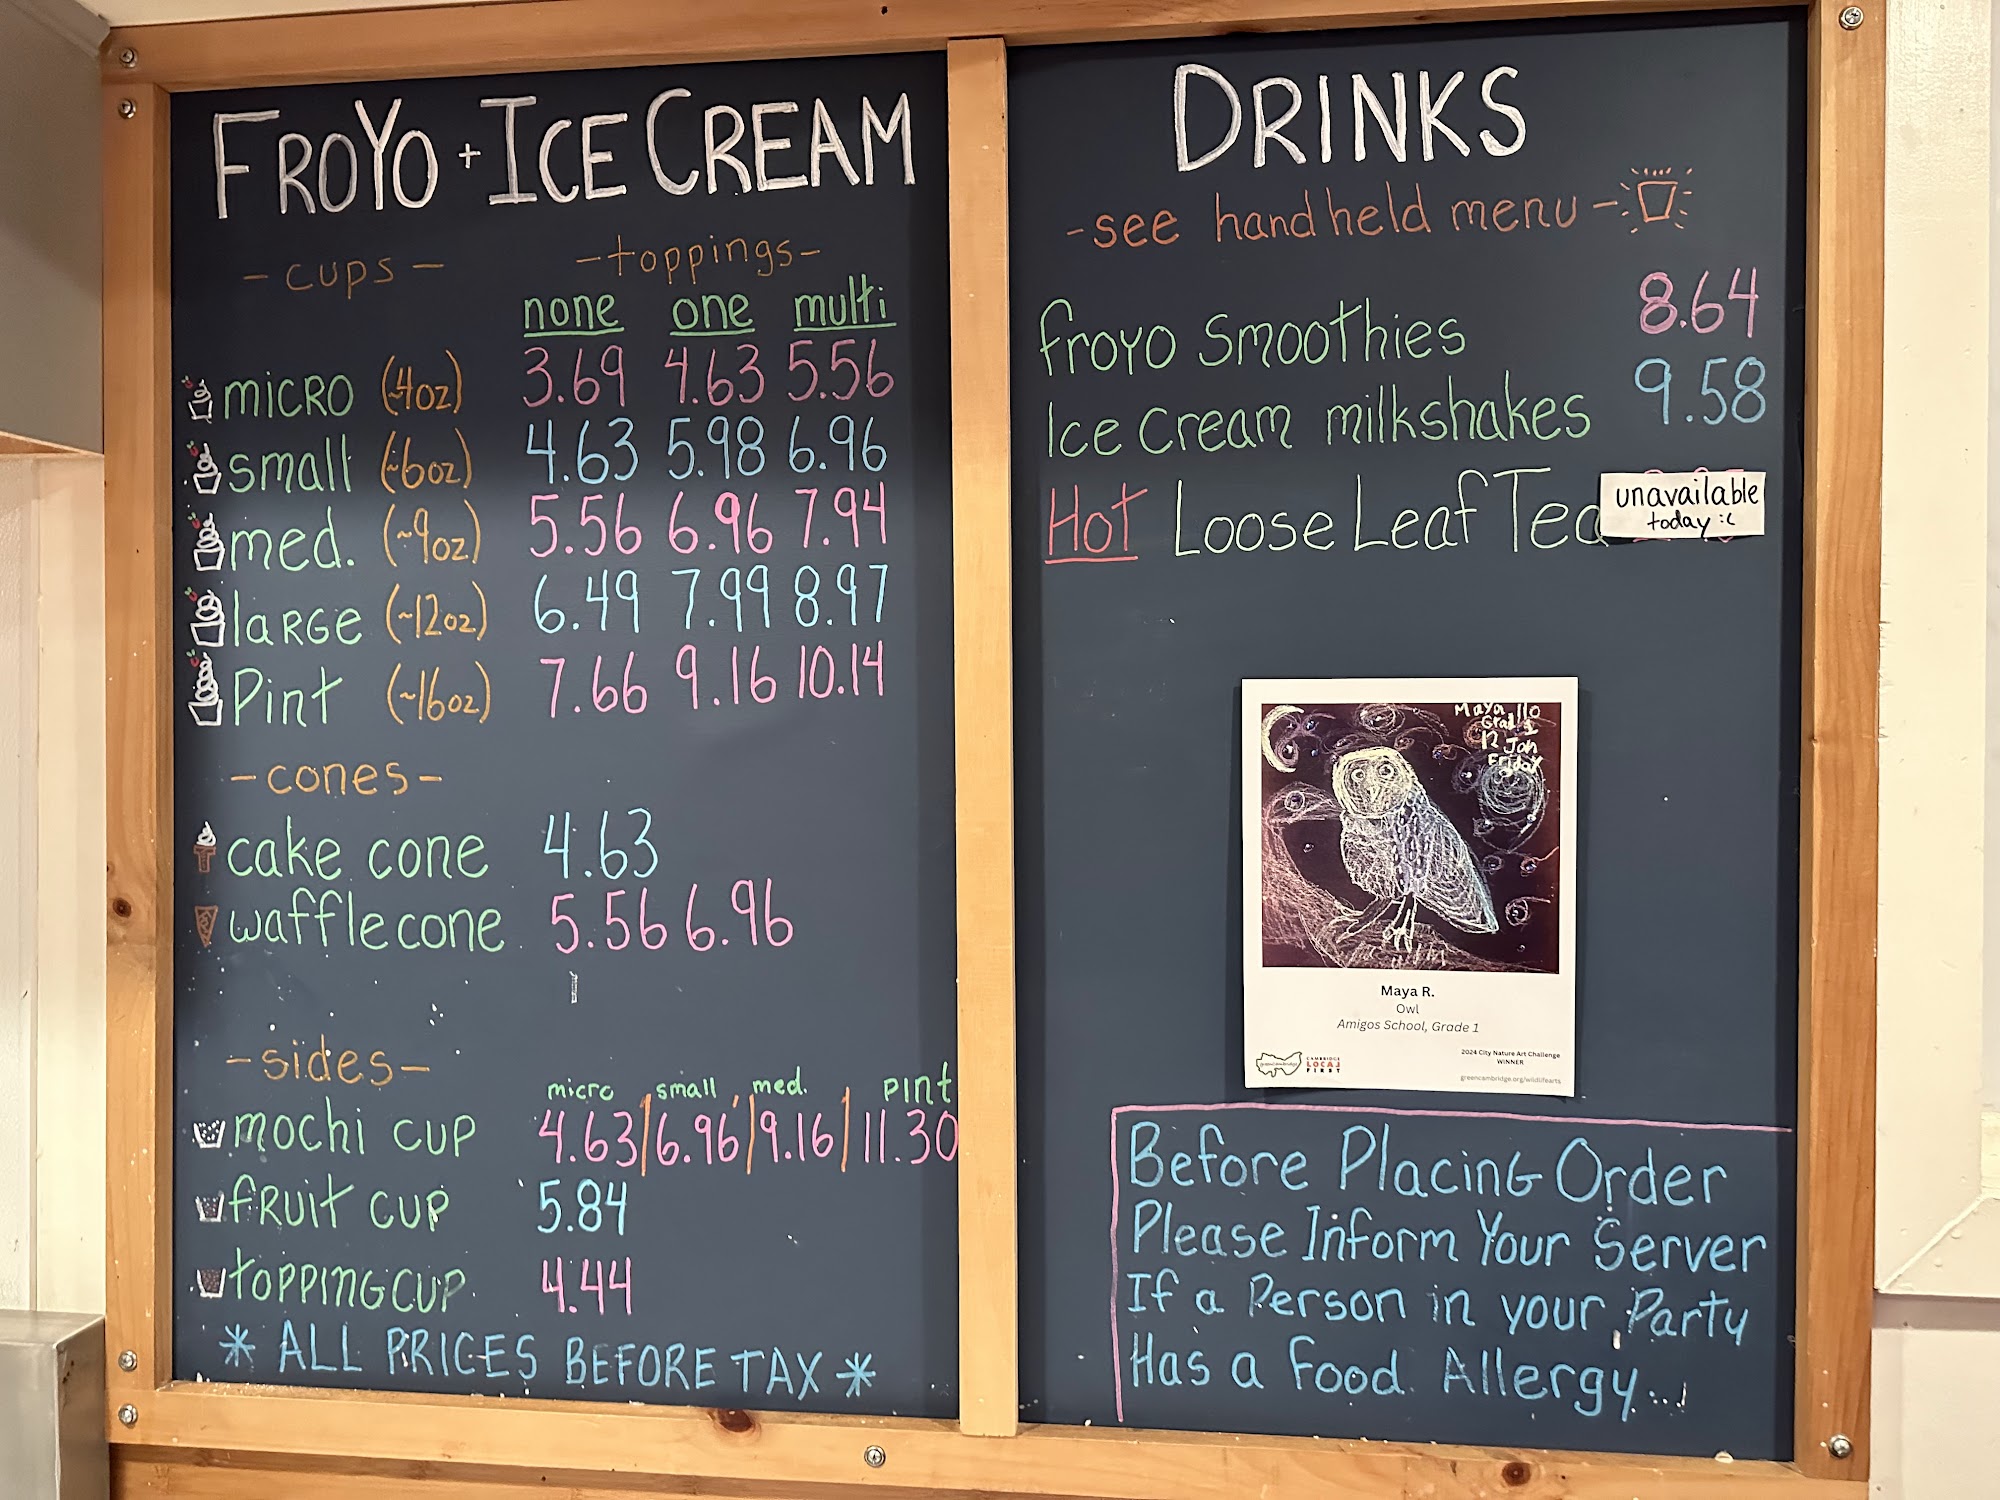 FROYO + ICE CREAM
- cups - - toppings -
none one multi
micro (~4oz) 3.69 4.63 5.56
small (~6oz) 4.63 5.98 6.96
med. (~9oz) 5.56 6.96 7.94
large (~12oz) 6.49 7.99 8.97
Pint (~16oz) 7.66 9.16 10.14
- cones -
cake cone 4.63
waffle cone 5.56 6.96
- sides -
micro small med. PINT
mochi cup 4.63 | 6.96 | 9.16 | 11.30
fruit cup 5.84
topping cup 4.44
* ALL PRICES BEFORE TAX *
DRINKS
- see handheld menu -
froyo smoothies 8.64
Ice cream milkshakes 9.58
Hot Loose Leaf Tea unavailable
today :(
Maya
Grad 1
12 Jan
Friday
Maya R.
Owl
Amigos School, Grade 1
2024 City Nature Art Challenge
WINNER
greencambridge
CAMBRIDGE
LOCAL
FIRST
greencambridge.org/wildlifearts
Before Placing Order
Please Inform Your Server
If a Person in your Party
Has a Food Allergy...